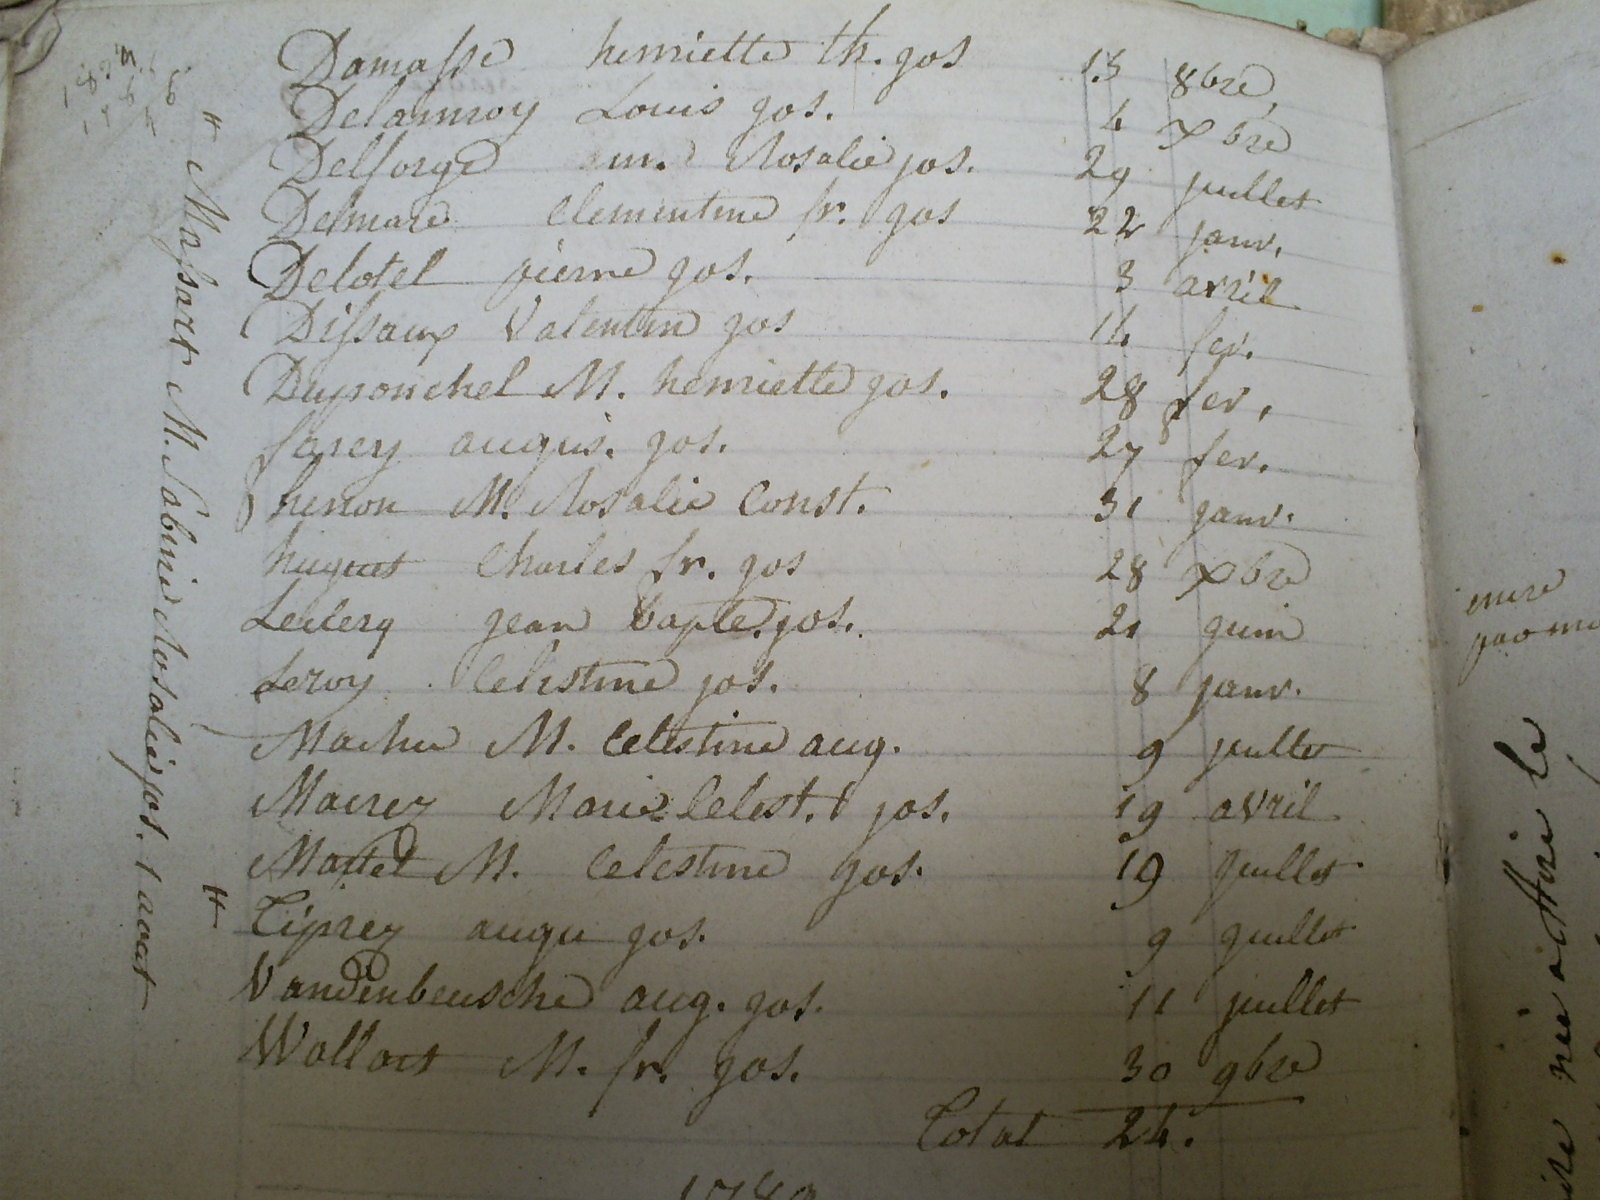 Damasse henriette th. jos 15 8bre
Delannoy Louis jos. 4 xbre
Delforge Rosalie jos. 29 juillet
Delmare Clementine fr. jos 22 janv.
Delotel pierre jos. 3 avril
Dissaux Valentin jos 14 fev.
Duponchel M. henriette jos. 28 fev.
farey augus. jos. 27 fev.
henon M. Rosalie Const. 31 janv.
Charles fr. jos 28 xbre
Leclerq jean bapte. jos. 21 juin
Leroy Celestine jos. 8 janv.
Machu M. Celestine aug. 9 juillet
Macrez Marie Celest. jos. 19 avril
Mattel M. Celestine jos. 19 juillet
Tiprez augu jos. 9 juillet
Vandenbeusche aug. jos. 11 juillet
Wallart M. fr. jos. 30 9bre
Total 24.
Massart M. Sabine Rosalie jos. 1 aout